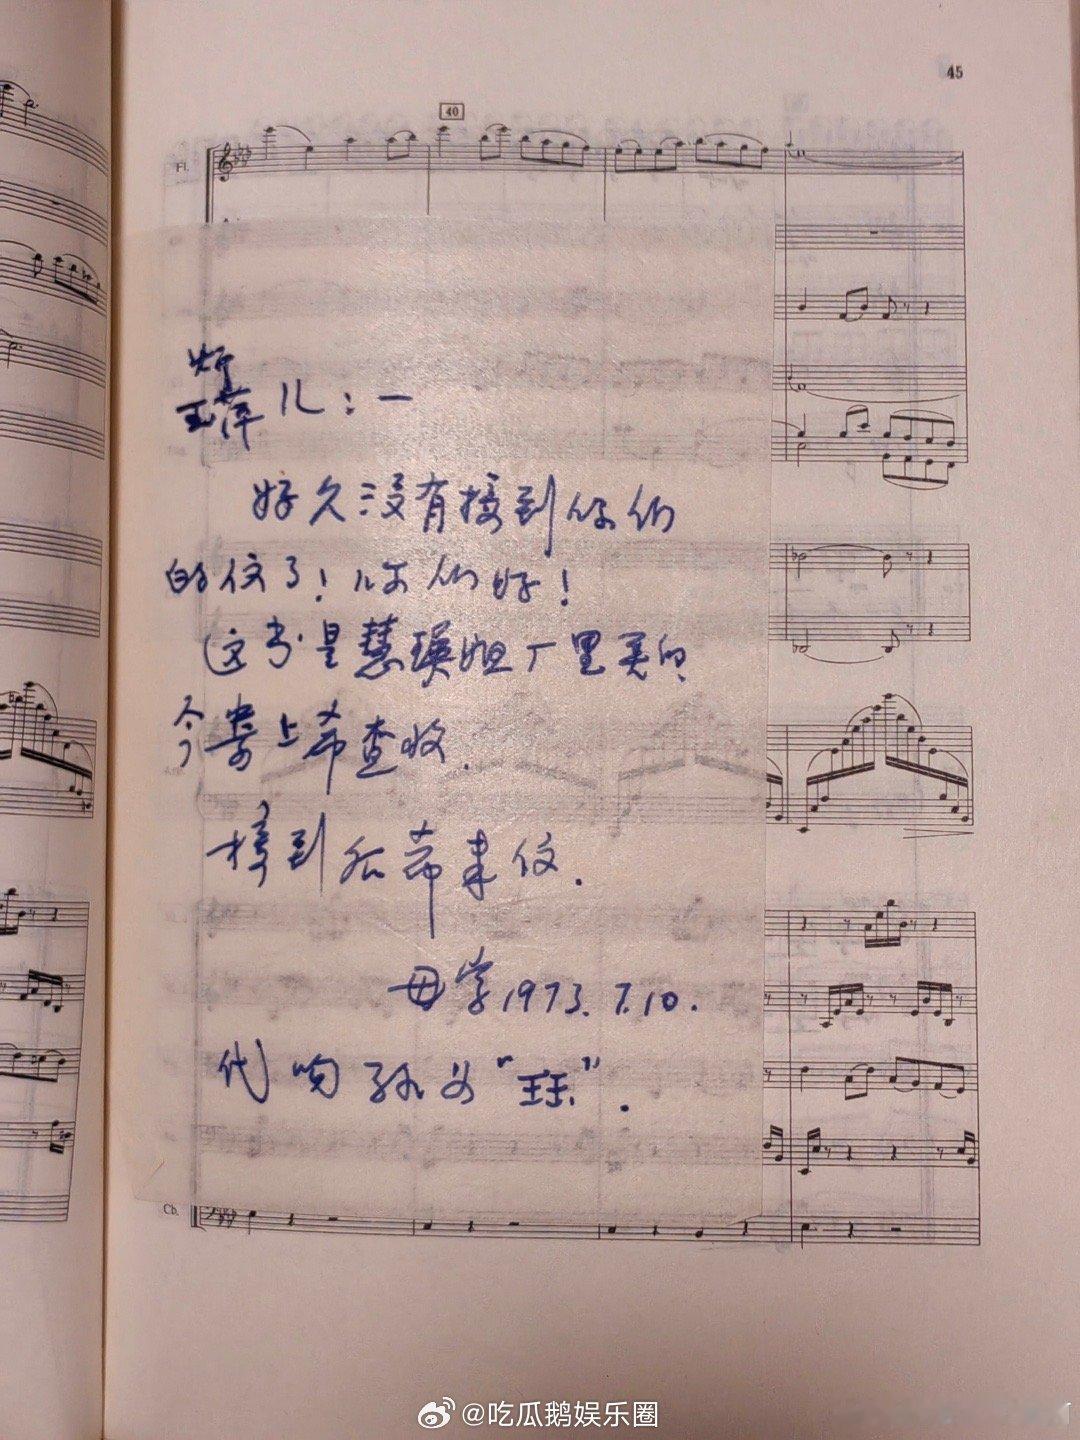 45
40
Fl.
炘
玉萍儿：一
好久没有接到你们
的信了！你们好！
这书是慧瑛姐厂里买的
今寄上希查收．
接到后希来信．
母字1973.7.10.
代吻孙女“珏”．
Cb.
@吃瓜鹅娱乐圈